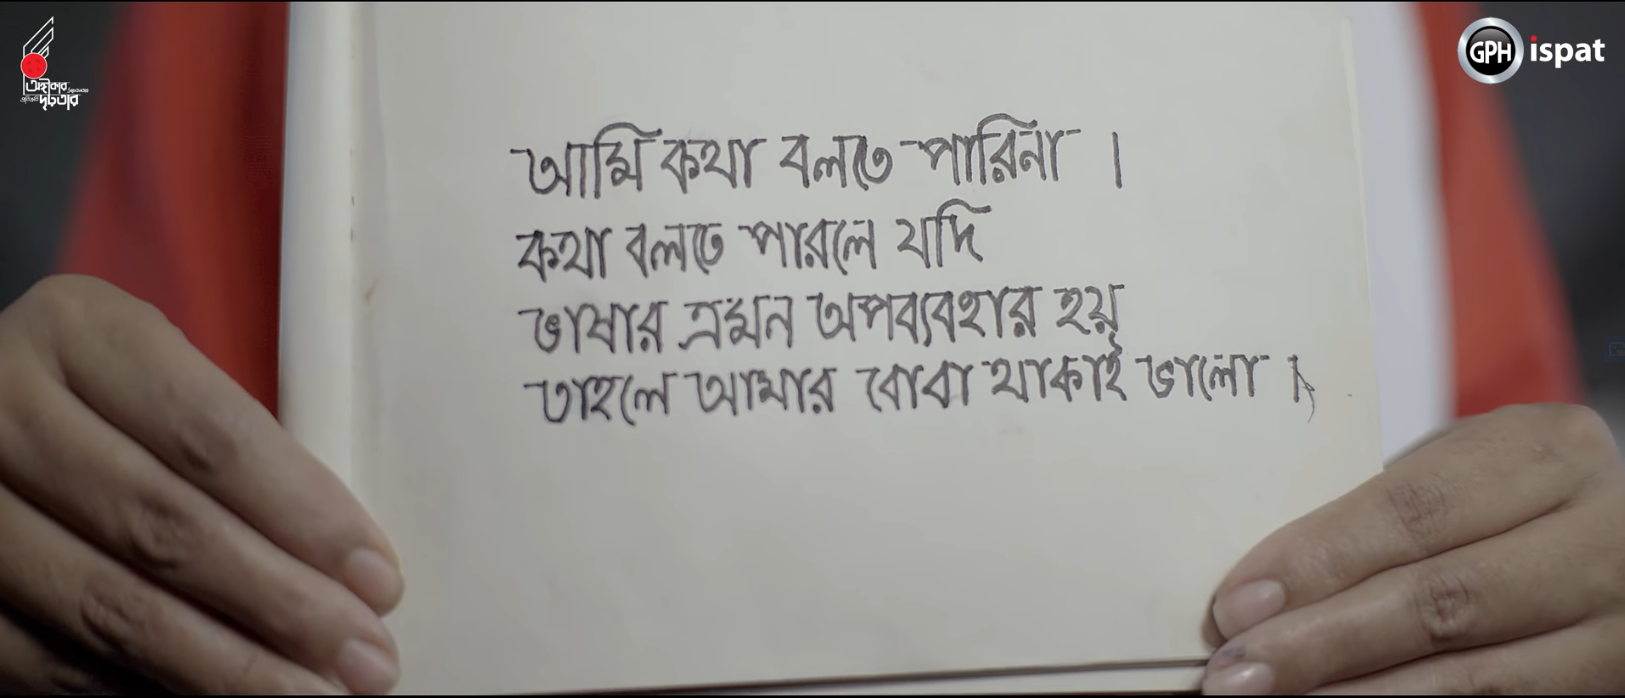 আমি কথা বলতে পারিনা ।
কথা বলতে পারলে যদি
ভাষার এমন অপব্যবহার হয়
তাহলে আমার বোবা থাকাই ভালো ।
GPH ispat
অঙ্গীকার
দৃঢ়তার